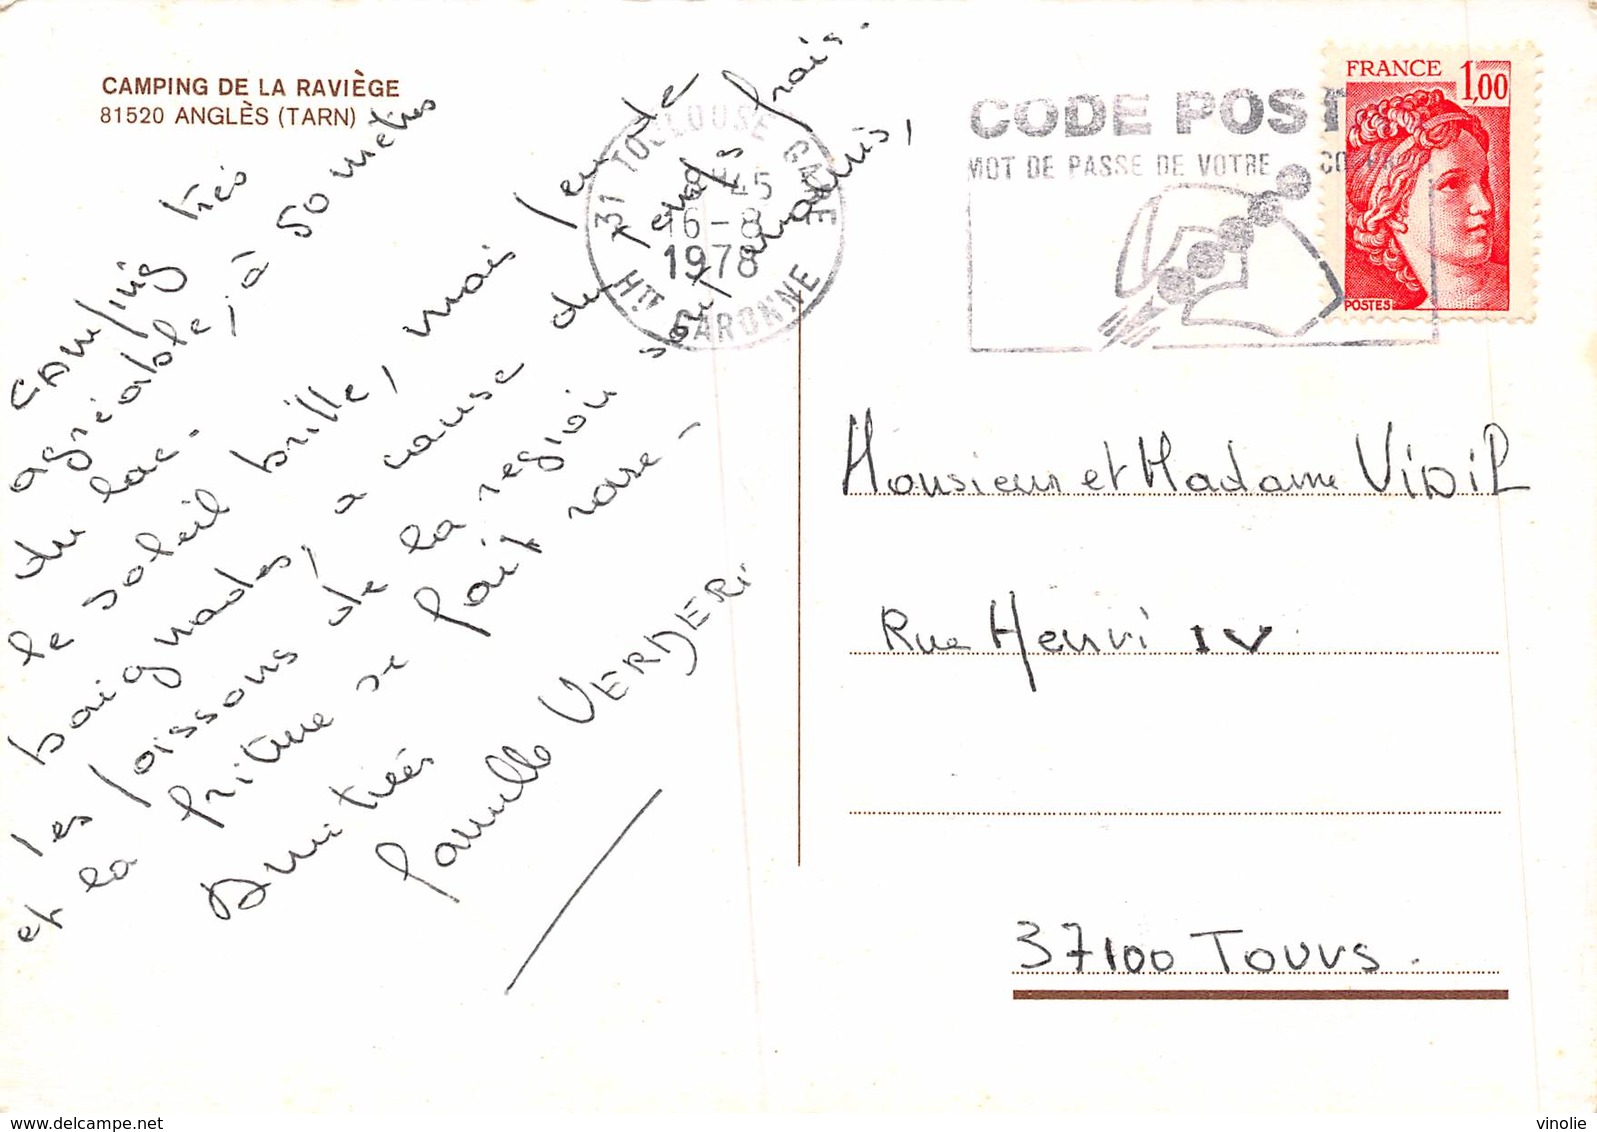 CAMPING DE LA RAVIÈGE
81520 ANGLÈS (TARN)
Camping très
agréable, à 50 mètres
du lac.
le soleil brille, mais peu de
baignades, à cause du temps frais.
les poissons de la region sont malins,
et la friture se fait rare -
Amitiés
famille VERDERI
31 TOULOUSE GARE
16-8
1978
Hte GARONNE
CODE POST
MOT DE PASSE DE VOTRE
FRANCE 1,00
POSTES
Monsieur et Madame VIDIL
Rue Henri IV
37100 Tours.
vinolie